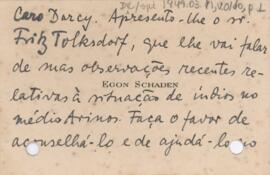 Caro Darcy. Apresento-lhe o sr.
Fritz Tolksdorf, que lhe vai falar
de suas observações recentes re-
lativas à situação de índios no
EGON SCHADEN
médio Arinos. Faça o favor de
aconselhá-lo e de ajudá-lo no